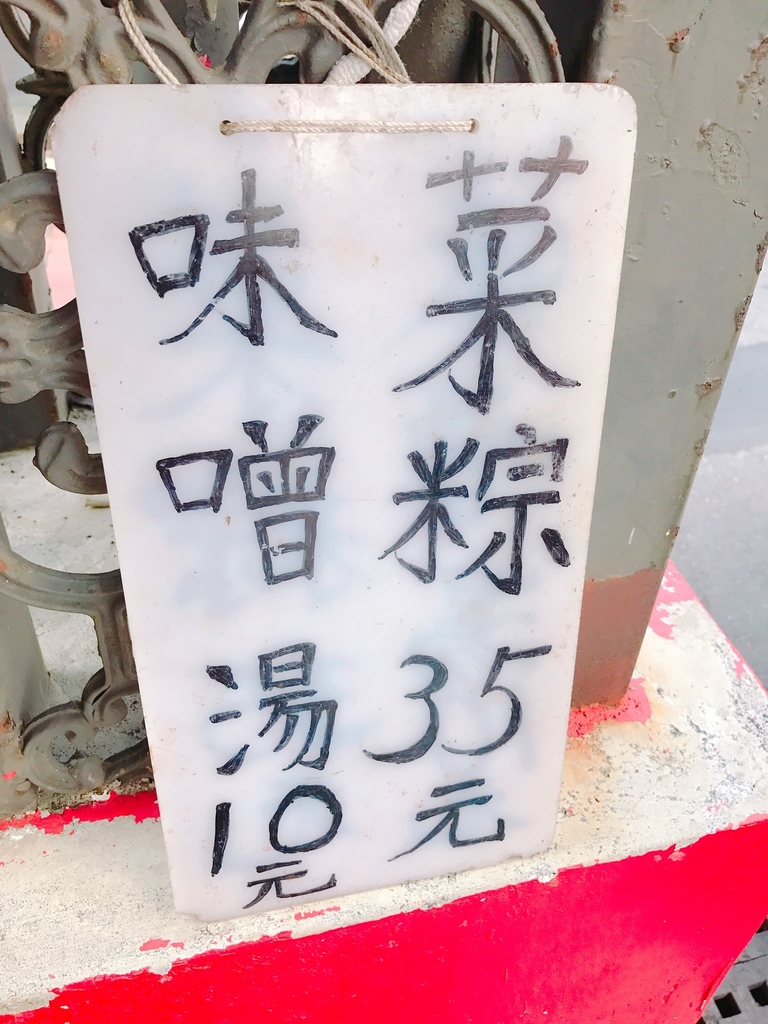 菜粽35元
味噌湯10元